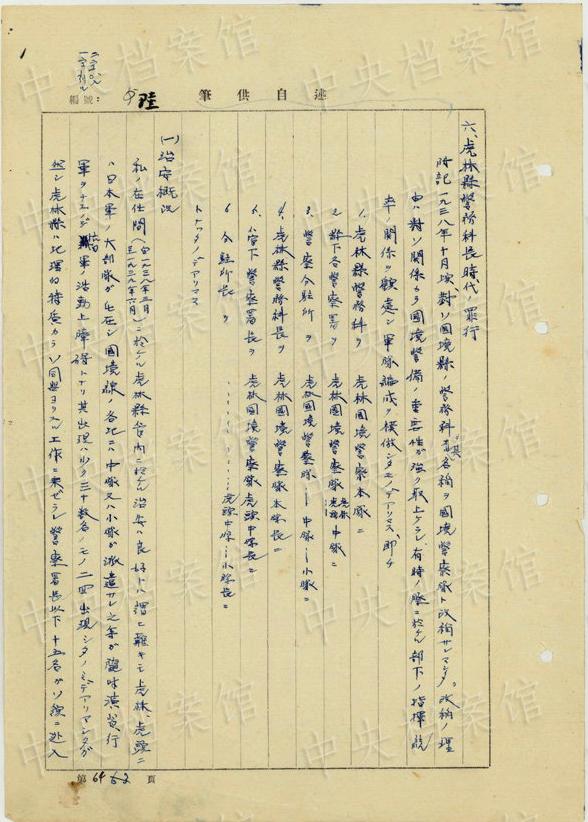 述自供筆
陸
六、虎林縣警務科長時代ノ罪行
附記一九三八年十月頃、対ソ国境縣ノ警務科其名稱ヲ国境警察隊ト改稱サレマシタ。改稱ノ理
由ハ対ソ関係カラ国境警備ノ重要性ガ強ク取上ゲラレ、有時ノ際ニ於ケル部下ノ指揮統
率ノ関係ヲ顧慮シ軍隊編成ヲ模倣シタモノデアリマス、即チ
1. 虎林縣警務科ヲ 虎林国境警察本隊ニ
2. 縣下各警察署ヲ 虎林国境警察隊虎林虎頭中隊ニ
3. 警察分駐所ヲ 虎林国境警察隊…中隊…小隊ニ
4. 虎林縣警務科長ヲ 虎林国境警察隊本隊長ニ
5. 警察署長ヲ 虎林国境警察隊虎頭中隊長ニ
6. 分駐所長ヲ …虎頭中隊…小隊長ニ
トナッタノデアリマス
(一) 治安概況
私ノ在任間(自一九三八年三月至一九三九年六月)ニ於ケル虎林縣管内ニ於ケル治安ハ良好トハ謂ヒ難キモ虎林、虎頭ニ
ハ日本軍ノ大部隊ガ屯在シ国境線ノ各地ニハ中隊又ハ小隊ガ派遣サレ之等ガ随時演習行
軍ヲ 軍ノ活動上障碍トナリ其出現ハ少ク三十数名ノモノ二回出現シタノミデアリマシタガ
然シ虎林縣ハ地理的特長カラソ同盟ヨリノ工作ニ乗ゼラレ警察署長以下十五名ガソ領ニ赴入
第 64 62 頁
中央档案馆